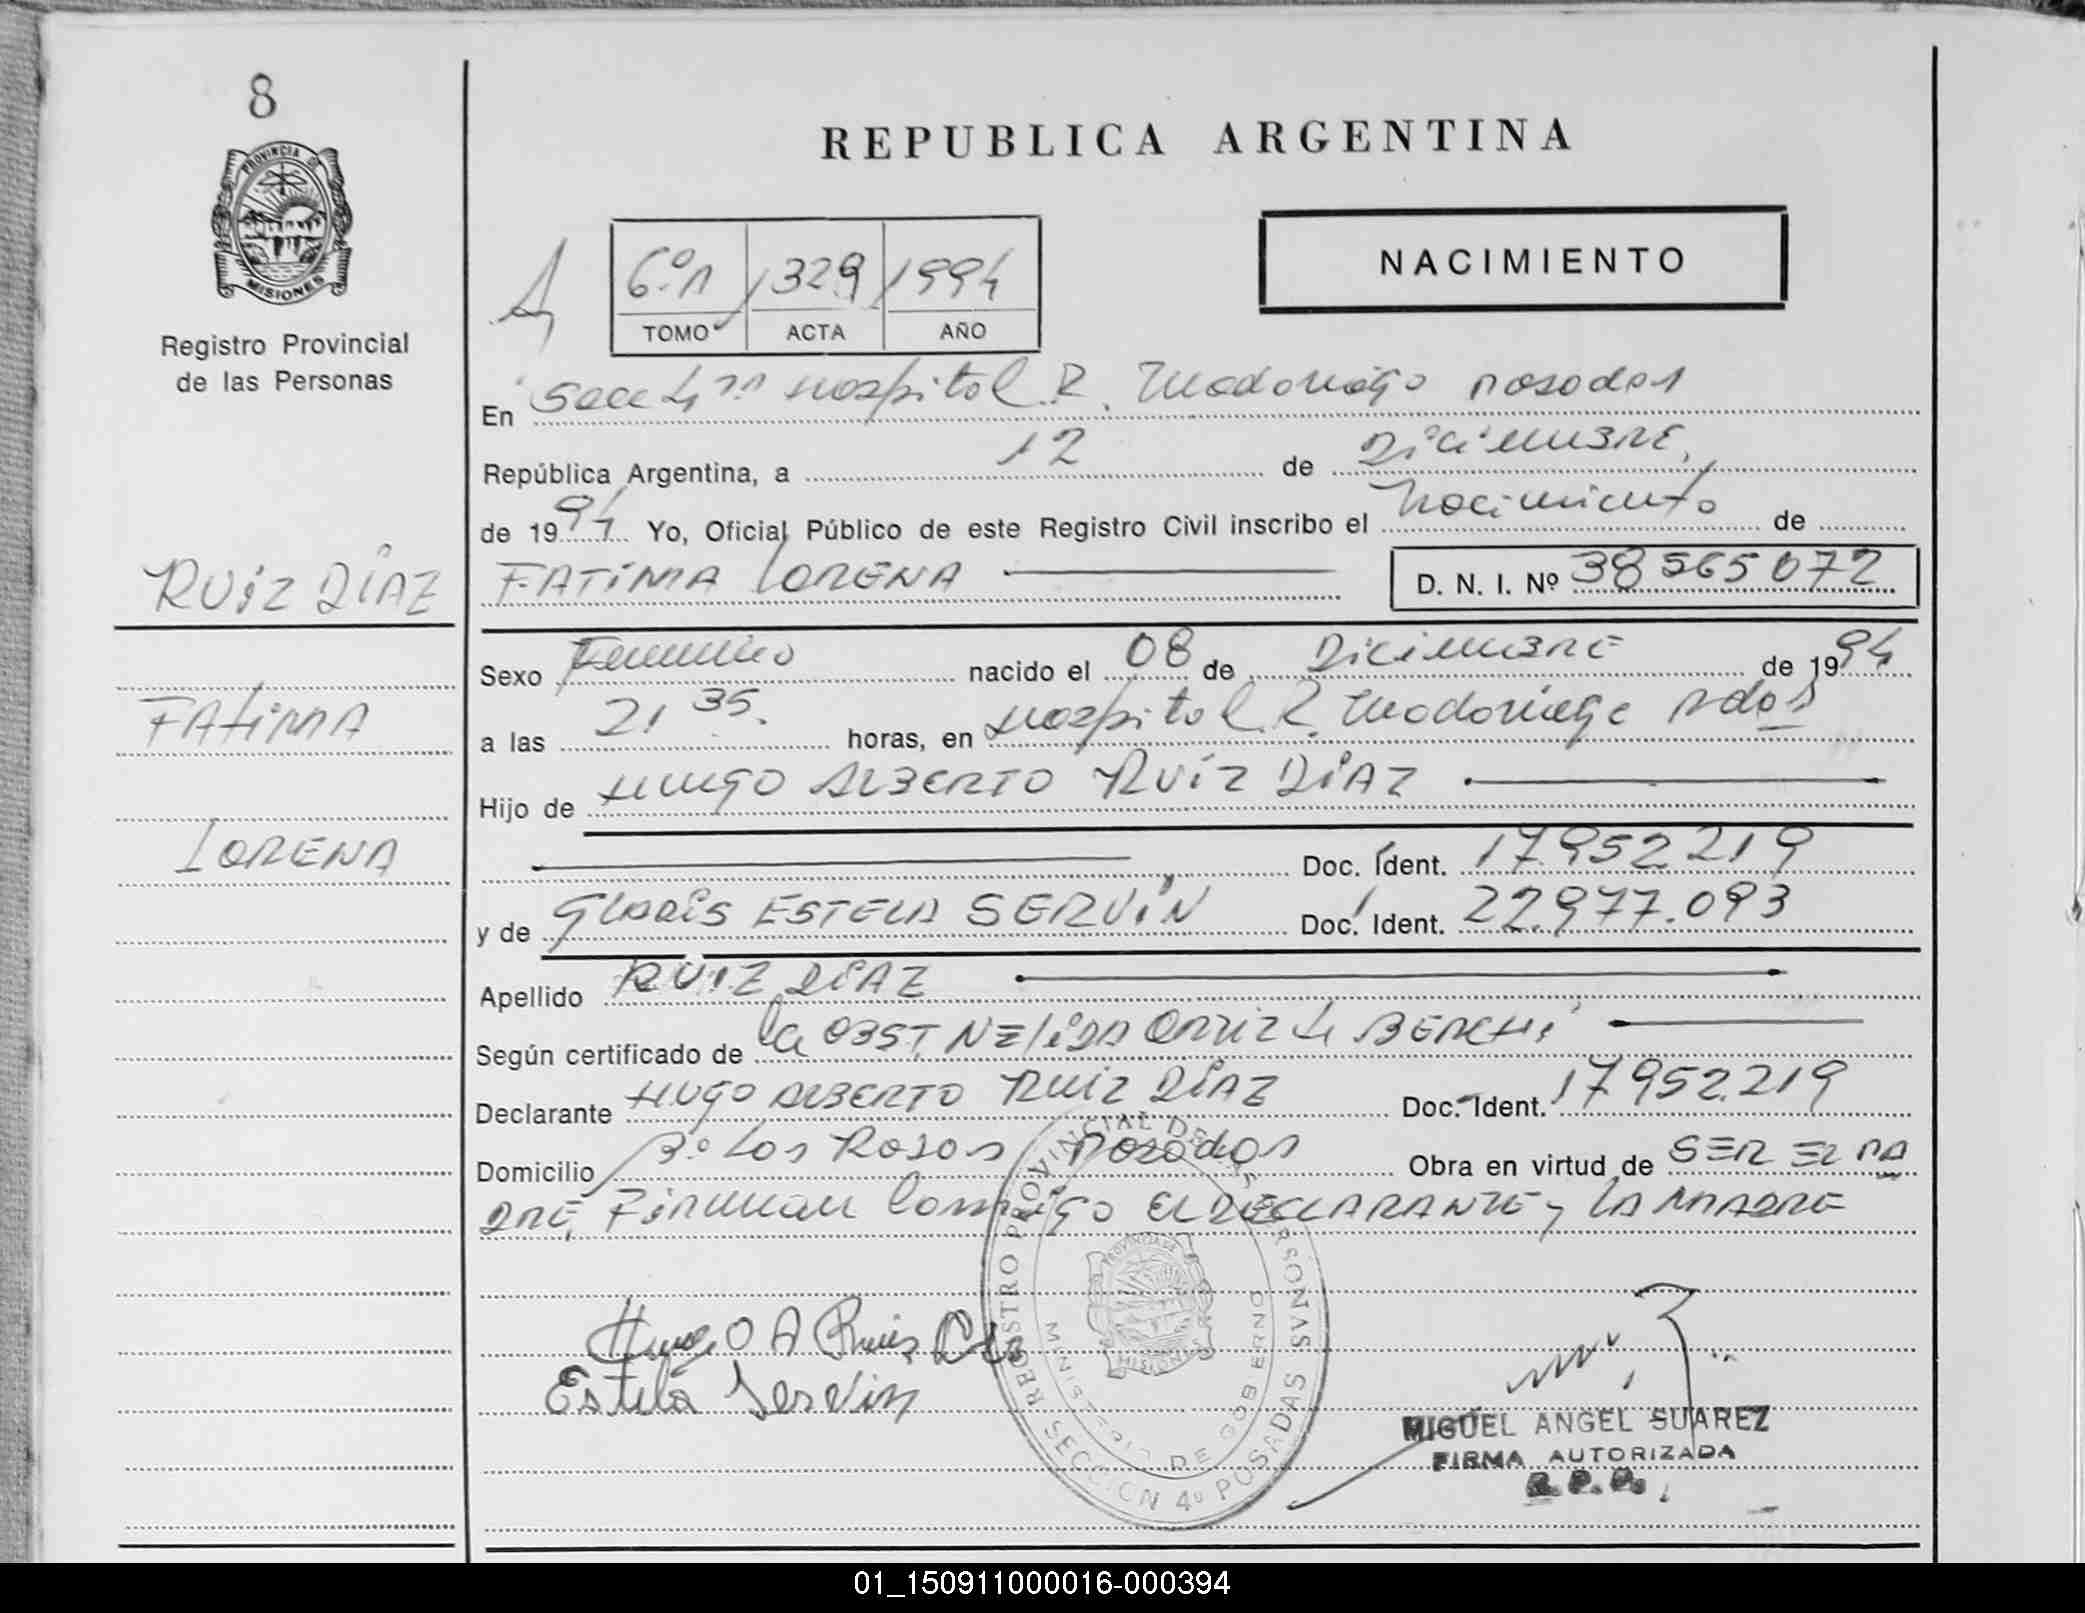 8
PROVINCIA DE
MISIONES
Registro Provincial
de las Personas
RUIZ DÍAZ
FATIMA
LORENA
REPUBLICA ARGENTINA
NACIMIENTO
6º 1329 1994
TOMO ACTA AÑO
En Secc 4ta Hospital R. Madariaga Posadas
República Argentina, a 12 de DiciEMBRE,
de 1994 Yo, Oficial Público de este Registro Civil inscribo el Nacimiento de
FATIMA LORENA D. N. I. Nº 38565072
Sexo Femenino nacido el 08 de DiciEMBRE de 1994
a las 21 35. horas, en Hospital R. Madariaga Pdas
Hijo de HUGO ALBERTO RUÍZ DÍAZ
Doc. Ident. 17.952.219
y de GLADIS ESTELA SERVÍN Doc. Ident. 22.977.093
Apellido RUIZ DÍAZ
Según certificado de la OBST. NELIDA ORTIZ de
Declarante HUGO ALBERTO RUIZ DÍAZ Doc. Ident. 17952.219
Domicilio Bº Los Rosas Posadas Obra en virtud de SER EL PA
DRE, Firman Conmigo EL DECLARANTE y LA MADRE
Hugo A Ruiz Diaz
Estela Servin
REGISTRO PROVINCIAL DE LAS PERSONAS
MINISTERIO DE GOBIERNO
PROVINCIA DE
MISIONES
SECCION 4º POSADAS
MIGUEL ANGEL SUAREZ
FIRMA AUTORIZADA
R.P.P.
01_150911000016-000394